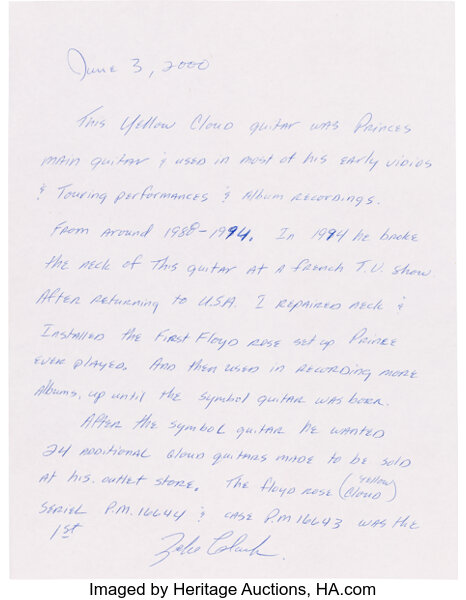 June 3, 2000
This Yellow Cloud guitar was Princes
main guitar & used in most of his early vidios
& Touring performances & Album recordings.
From around 1988-1994. In 1994 he broke
the neck of this guitar at a french T.V. show
After returning to U.S.A. I repaired neck &
Installed the First Floyd rose set up Prince
ever played. And then used in recording more
Albums, up until the symbol guitar was born.
After the symbol guitar he wanted
24 additional cloud guitars made to be sold
at his outlet store. The floyd rose (Yellow
Cloud)
serial P.M. 16644 & case P.M 16643 was the
1st
Zeke Clark
Imaged by Heritage Auctions, HA.com